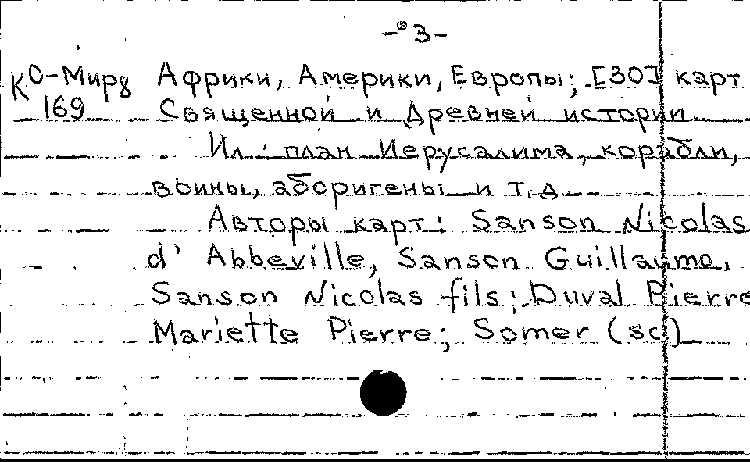 -3-
КО-Мир8 Африки, Америки, Европы; [30] карт
169 Священной и Древней истории.
Ил.: план Иерусалима, корабли,
воины, аборигены и т.д.
Авторы карт: Sanson Nicolas
d'Abbeville, Sanson Guillaume,
Sanson Nicolas fils; Duval Pierre
Mariette Pierre; Somer (sc)